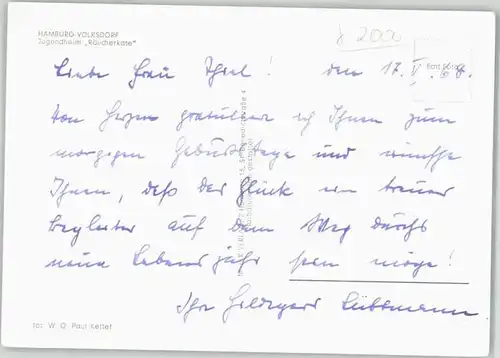 HAMBURG-VOLKSDORF
Jugendheim „Räucherkate"
2000
Liebe Frau Thiel! den 17. V. 68.
Von Herzen gratuliere ich Ihnen zum
morgigen Geburtstage und wünsche
Ihnen, daß das Glück ein treuer
Begleiter auf dem Weg durchs
neue Lebensjahr sein möge!
Ihr Lübbmann
fot. W. O. Paul Kettel